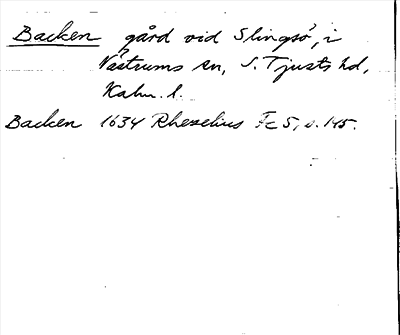 Backen gård vid Slingsö, i
Västrums sn, S. Tjusts hd,
Kalm. l.
Backen 1634 Rhezelius Fc 5, s. 145.